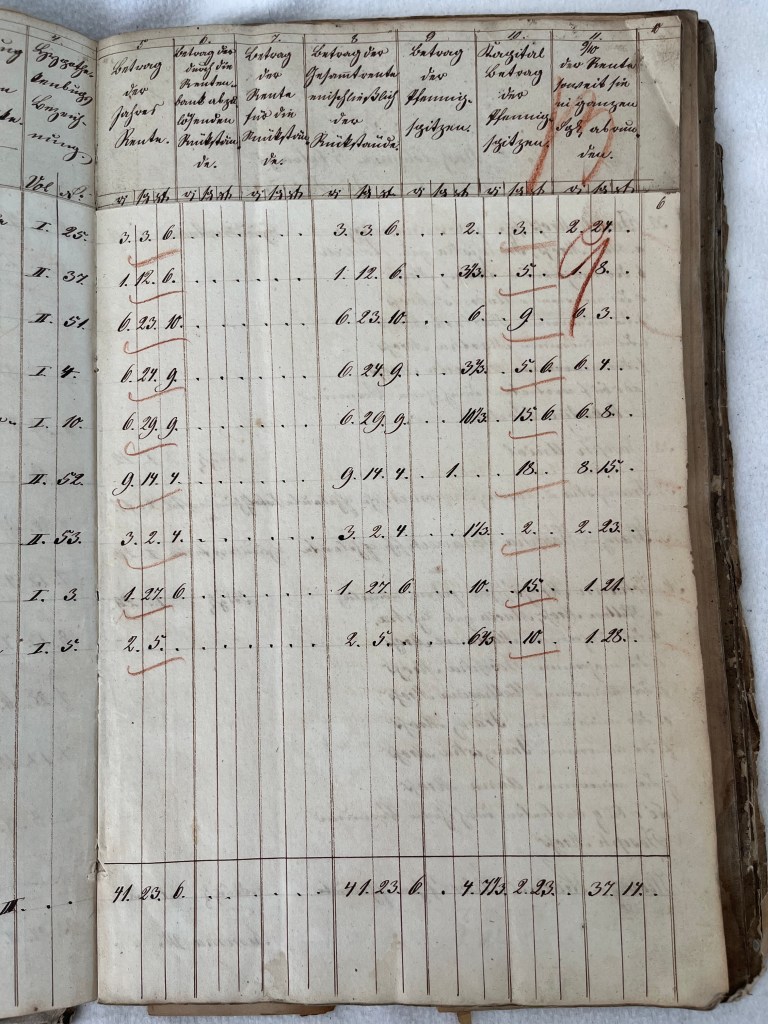 4. 5. 6. 7. 8. 9. 10. 11.
Hypothe-
kenbuchs
Bezeich-
nung.
Betrag
der
Jahres
Rente.
Betrag der
durch die
Renten-
bank abzu-
lösenden
Rückstän-
de.
Betrag
der
Rente
für die
Rückstän-
de.
Betrag der
Gesammtrente
einschließlich
der
Rückstände.
Betrag
der
Pfennig-
spitzen.
Kapital
Betrag
der
Pfennig-
spitzen.
9/10
der Rente
soweit sie
in ganzen
Sgr. abrun-
den.
Vol N.
6
I. 25. 3. 3. 6. 3. 3. 6. 2. 3. 2. 24.
II. 37. 1. 12. 6. 1. 12. 6. 3 1/3. 5. 1. 8.
II. 51. 6. 23. 10. 6. 23. 10. 6. 9. 6. 3.
I. 4. 6. 24. 9. 6. 24. 9. 3 2/3. 5. 6. 6. 4.
I. 10. 6. 29. 9. 6. 29. 9. 10 1/3. 15. 6. 6. 8.
II. 52. 9. 14. 4. 9. 14. 4. 1. 18. 8. 15.
II. 53. 3. 2. 4. 3. 2. 4. 1 1/3. 2. 2. 23.
I. 3. 1. 27. 6. 1. 27. 6. 10. 15. 1. 21.
I. 5. 2. 5. 2. 5. 6 2/3. 10. 1. 28.
41. 23. 6. 41. 23. 6. 4. 7 1/3. 2. 23. 37. 14.